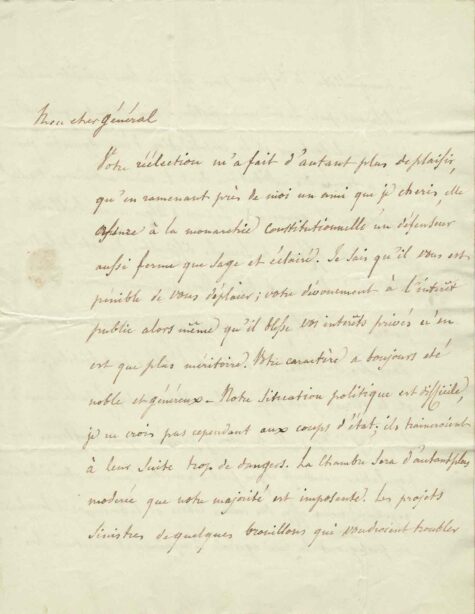 Mon cher général
Votre réélection m'a fait d'autant plus de plaisir,
qu'en ramenant près de moi un ami que je chéris, elle
assure à la monarchie constitutionnelle un défenseur
aussi ferme que sage et éclairé. Je sais qu'il vous est
pénible de vous déplacer; votre dévouement à l'intérêt
public alors même qu'il blesse vos intérêts privés n'en
est que plus méritoire. Votre caractère a toujours été
noble et généreux – Notre situation politique est difficile,
je ne crois pas cependant aux coups d'état; ils traineroient
à leur suite trop de dangers. La Chambre sera d'autant plus
modérée que notre majorité est imposante. Les projets
sinistres de quelques brouillons qui voudroient troubler